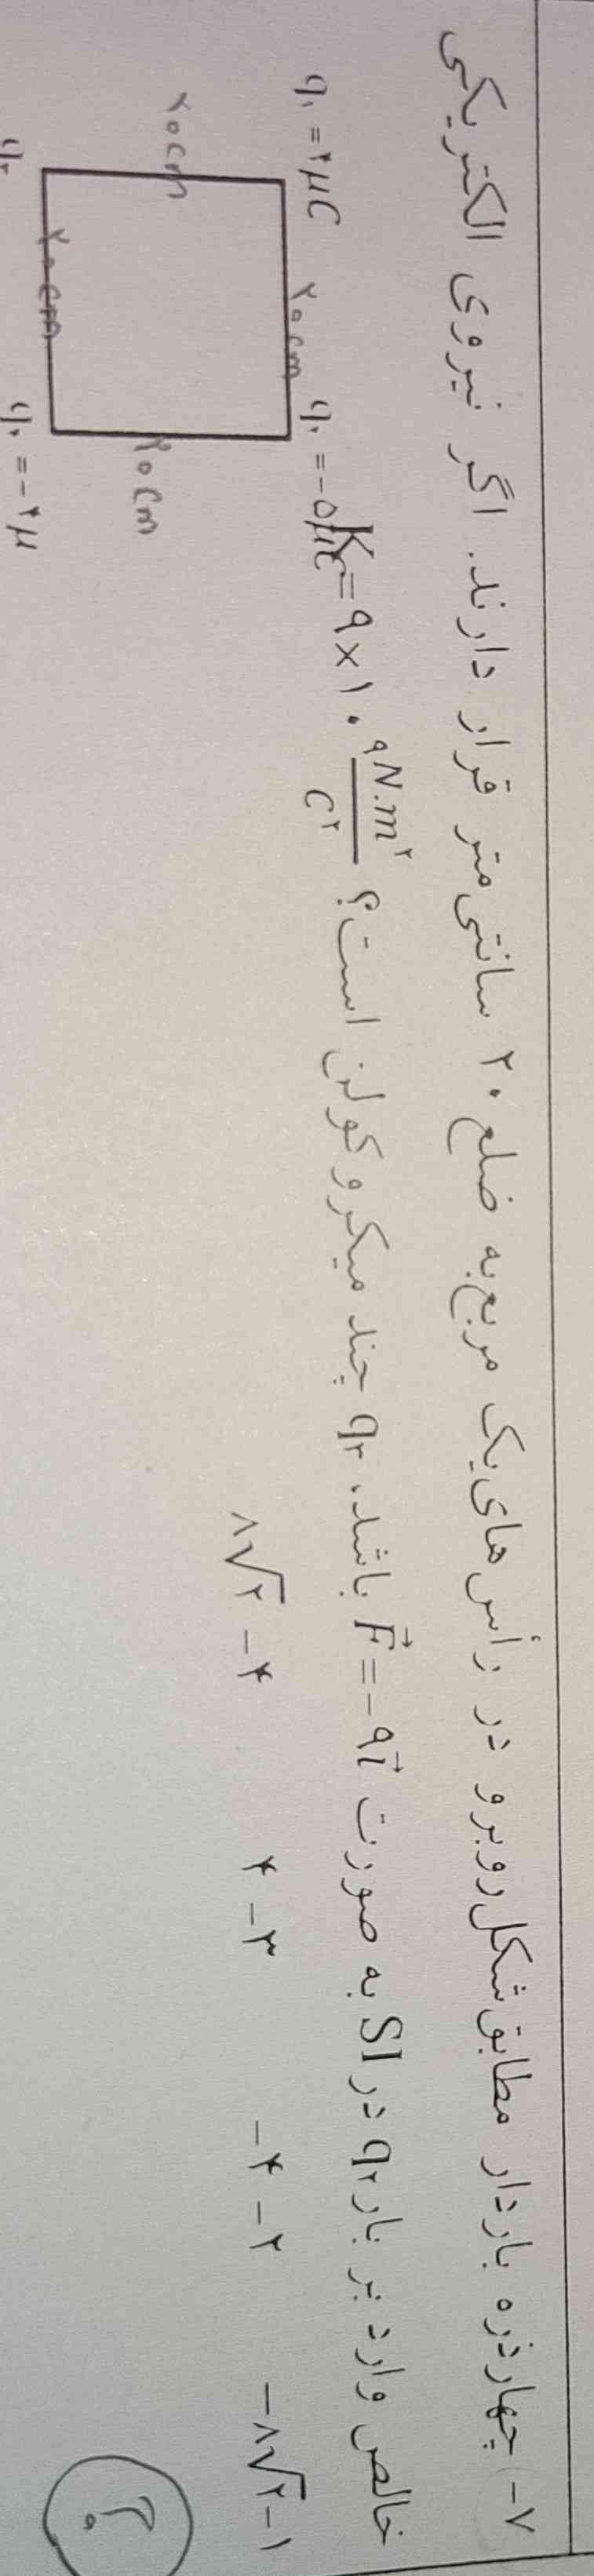 ۷- چهار ذره باردار مطابق شکل روبرو در رأس های یک مربع به ضلع ۲۰ سانتی متر قرار دارند. اگر نیروی الکتریکی
خالص وارد بر بار q۲ در SI به صورت F⃗ = -۹i⃗ باشد، q۳ چند میکروکولن است؟ K = ۹×۱۰^۹ N.m²/C²
۱- -۸√۲ ۲- -۴ ۳- ۴ ۴- ۸√۲
q۱ = ۲μC ۲۰cm = -۵μC
۲۰cm ۲۰cm
۲۰cm
= -۲μ
؟